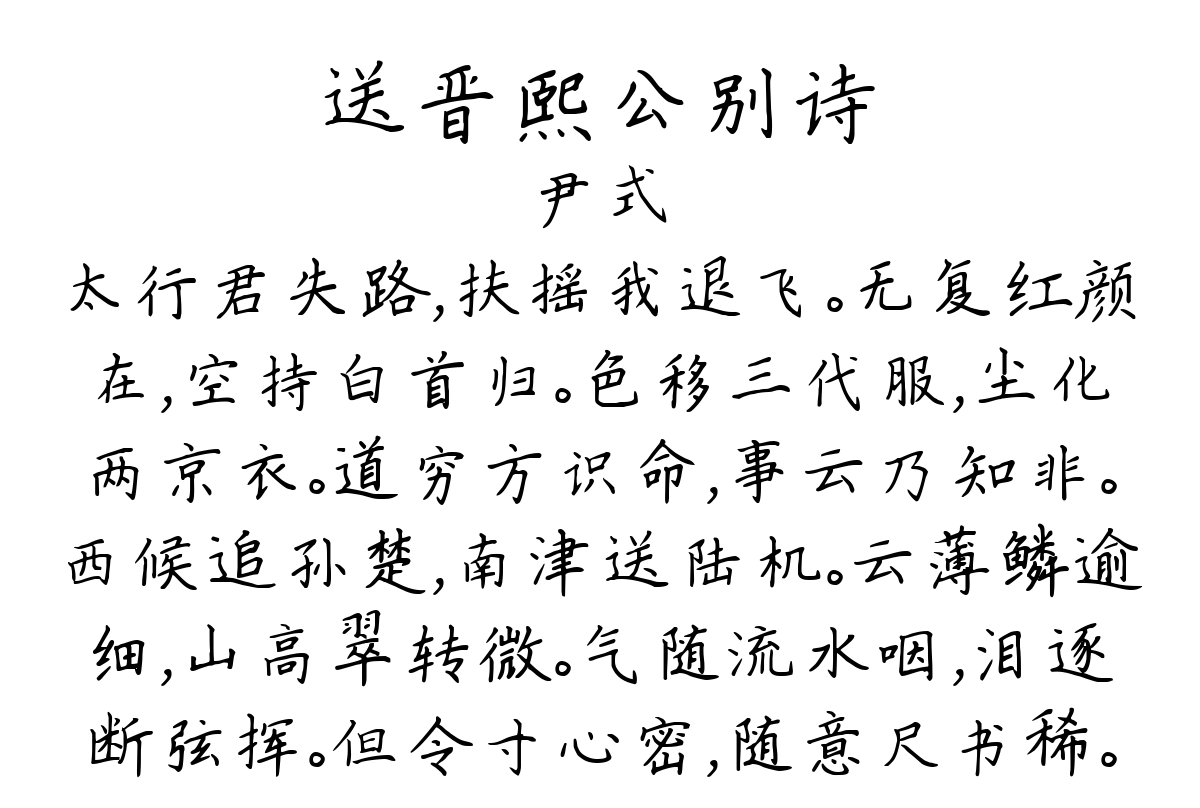 送晋熙公别诗
尹式
太行君失路,扶摇我退飞。无复红颜
在,空持白首归。色移三代服,尘化
两京衣。道穷方识命,事云乃知非。
西候追孙楚,南津送陆机。云薄鳞逾
细,山高翠转微。气随流水咽,泪逐
断弦挥。但令寸心密,随意尺书稀。